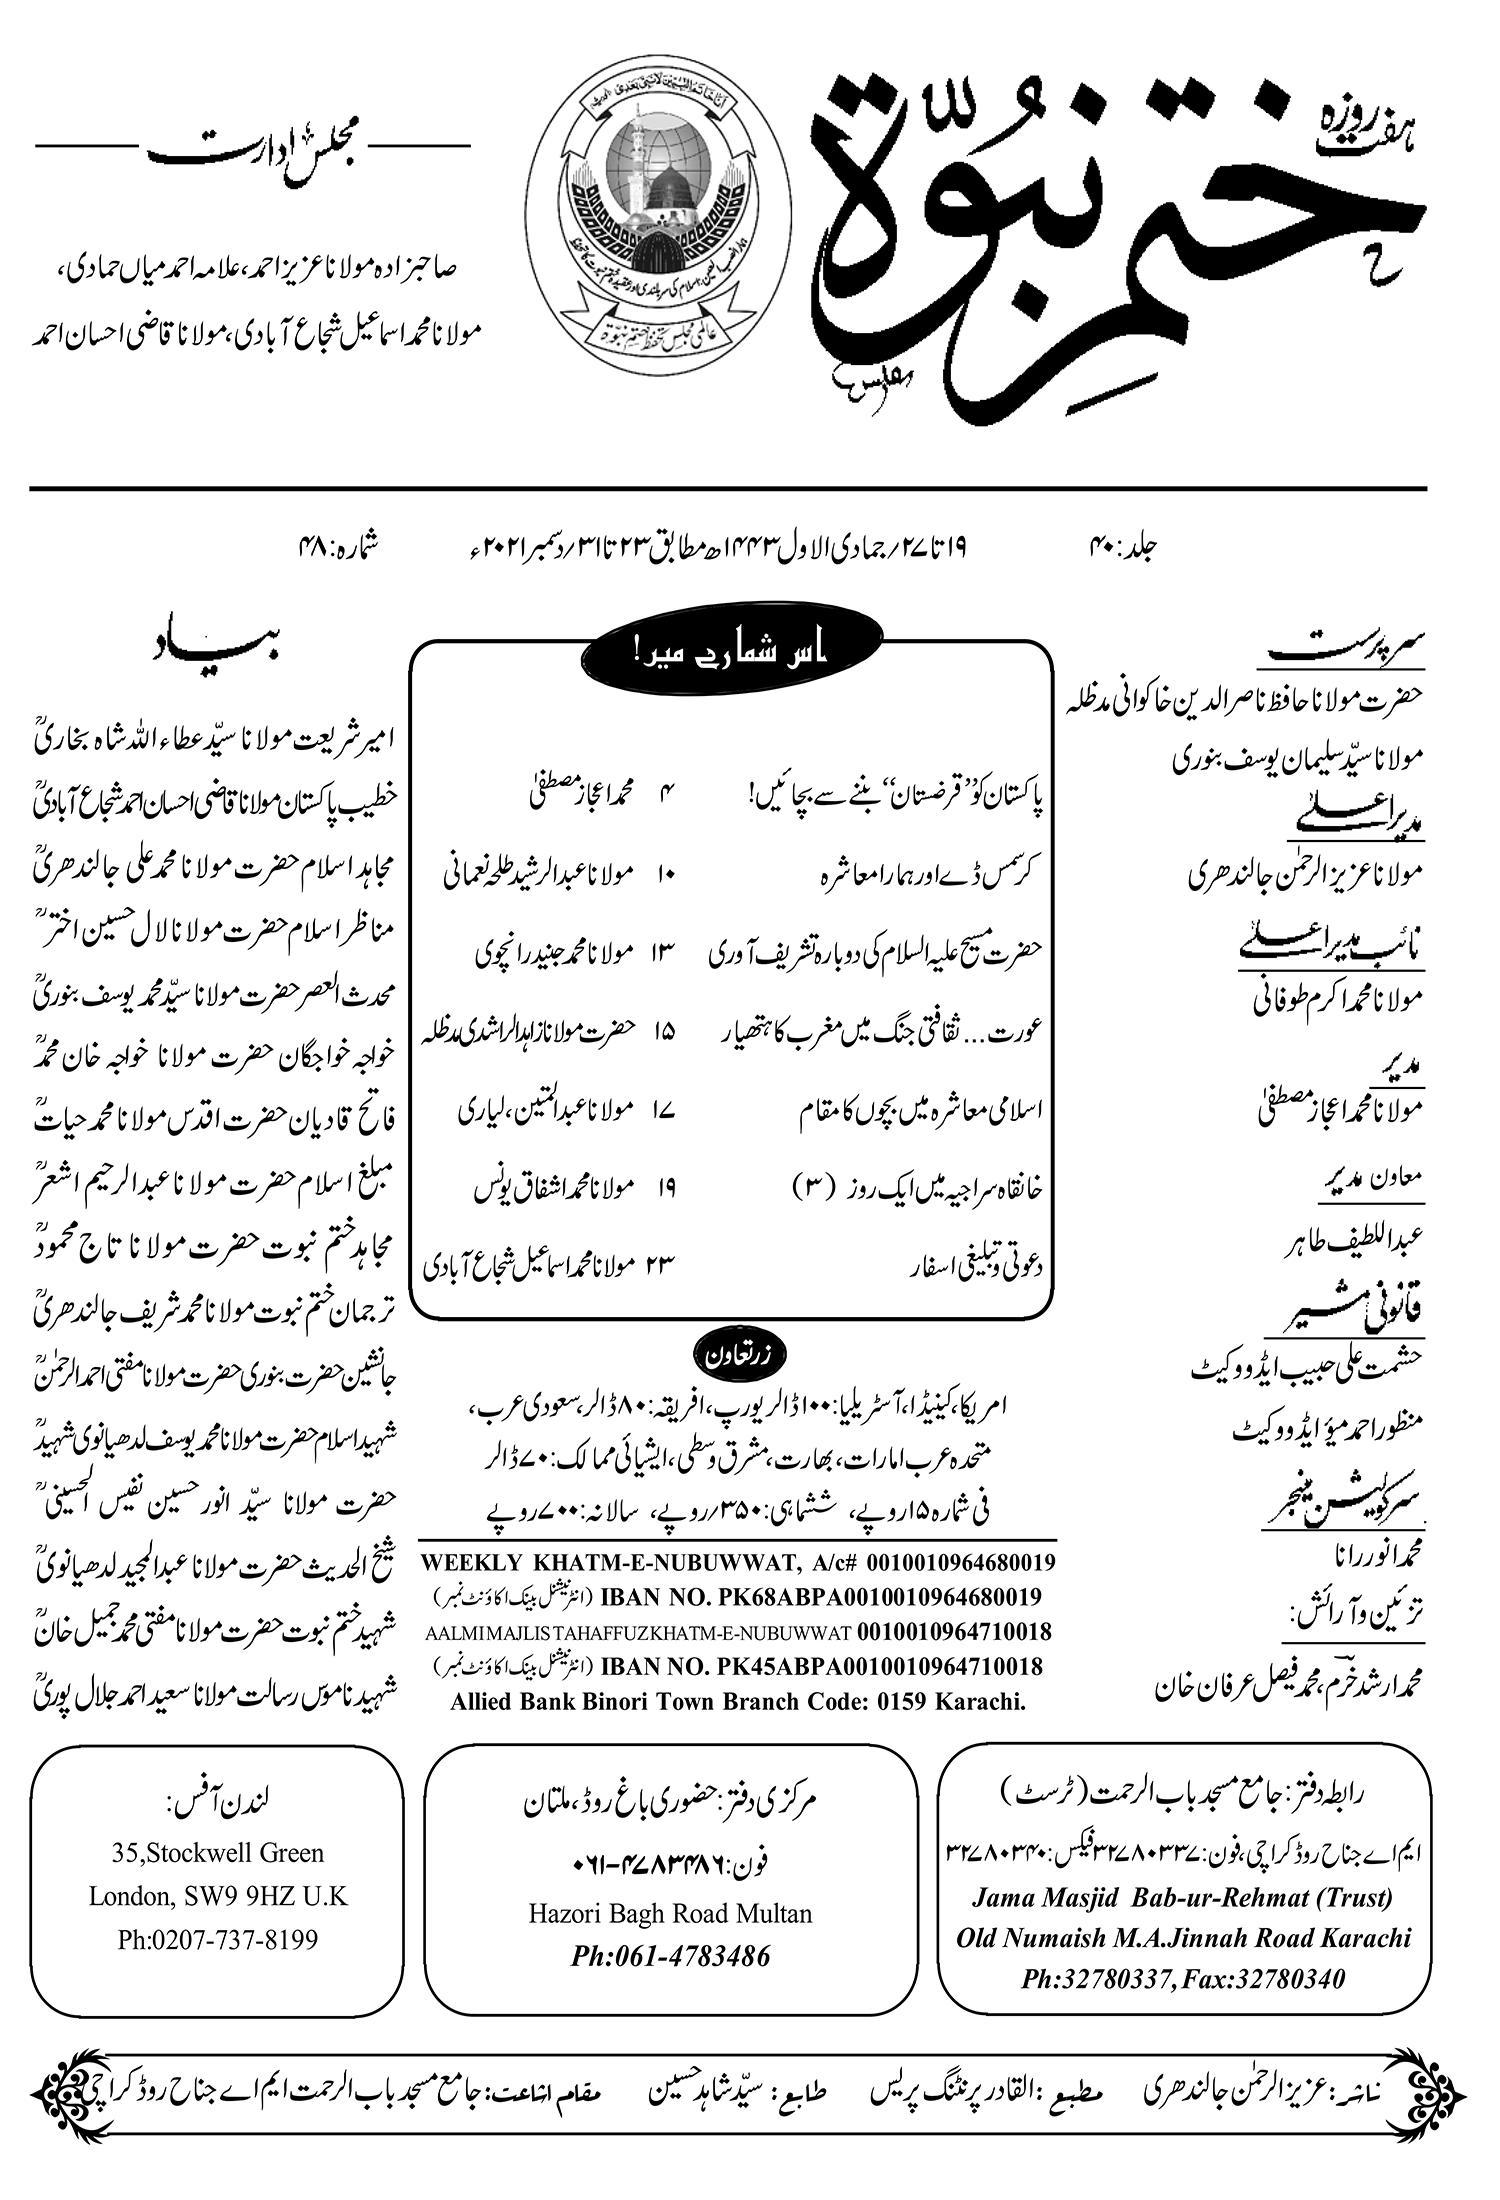 ہفت روزہ
ختم نبوۃ
مجلس ادارت
صاحبزادہ مولانا عزیز احمد، علامہ احمد میاں حمادی،
مولانا محمد اسماعیل شجاع آبادی، مولانا قاضی احسان احمد
عالمی مجلس تحفظ ختم نبوۃ
جلد: ۴۰
۱۹ تا ۲۷/جمادی الاول ۱۴۴۳ھ مطابق ۲۳ تا ۳۱/دسمبر ۲۰۲۱ء
شمارہ: ۴۸
سرپرست
حضرت مولانا حافظ ناصر الدین خاکوانی مدظلہ
مولانا سیّد سلیمان یوسف بنوری
مدیر اعلیٰ
مولانا عزیز الرحمٰن جالندھری
نائب مدیر اعلیٰ
مولانا محمد اکرم طوفانی
مدیر
مولانا محمد اعجاز مصطفیٰ
معاون مدیر
عبداللطیف طاہر
قانونی مشیر
حشمت علی حبیب ایڈووکیٹ
منظور احمد میؤ ایڈووکیٹ
سرکولیشن منیجر
محمد انور رانا
تزئین و آرائش:
محمد ارشد خرم، محمد فیصل عرفان خان
اس شمارے میں!
پاکستان کو ”قرضستان“ بننے سے بچائیں! ۴ محمد اعجاز مصطفیٰ
کرسمس ڈے اور ہمارا معاشرہ ۱۰ مولانا عبدالرشید طلحہ نعمانی
حضرت مسیح علیہ السلام کی دوبارہ تشریف آوری ۱۳ مولانا محمد جنید رانچوی
عورت... ثقافتی جنگ میں مغرب کا ہتھیار ۱۵ حضرت مولانا زاہد الراشدی مدظلہ
اسلامی معاشرہ میں بچوں کا مقام ۱۷ مولانا عبدالمتین، لیاری
خانقاہ سراجیہ میں ایک روز (۳) ۱۹ مولانا محمد اشفاق یونس
دعوتی و تبلیغی اسفار ۲۳ مولانا محمد اسماعیل شجاع آبادی
زرتعاون
امریکا، کینیڈا، آسٹریلیا: ۱۰۰ ڈالر یورپ، افریقہ: ۸۰ ڈالر، سعودی عرب،
متحدہ عرب امارات، بھارت، مشرق وسطی، ایشیائی ممالک: ۷۰ ڈالر
فی شمارہ ۱۵ روپے، ششماہی: ۳۵۰/روپے، سالانہ: ۷۰۰ روپے
WEEKLY KHATM-E-NUBUWWAT, A/c# 0010010964680019
IBAN NO. PK68ABPA0010010964680019 (انٹرنیشنل بینک اکاؤنٹ نمبر)
AALMIMAJLISTAHAFFUZKHATM-E-NUBUWWAT 0010010964710018
IBAN NO. PK45ABPA0010010964710018 (انٹرنیشنل بینک اکاؤنٹ نمبر)
Allied Bank Binori Town Branch Code: 0159 Karachi.
بیاد
امیر شریعت مولانا سیّد عطاء اللہ شاہ بخاریؒ
خطیب پاکستان مولانا قاضی احسان احمد شجاع آبادیؒ
مجاہد اسلام حضرت مولانا محمد علی جالندھریؒ
مناظر اسلام حضرت مولانا لال حسین اخترؒ
محدث العصر حضرت مولانا سیّد محمد یوسف بنوریؒ
خواجہ خواجگان حضرت مولانا خواجہ خان محمدؒ
فاتح قادیان حضرت اقدس مولانا محمد حیاتؒ
مبلغ اسلام حضرت مولانا عبدالرحیم اشعرؒ
مجاہد ختم نبوت حضرت مولانا تاج محمودؒ
ترجمان ختم نبوت مولانا محمد شریف جالندھریؒ
جانشین حضرت بنوری حضرت مولانا مفتی احمد الرحمٰنؒ
شہید اسلام حضرت مولانا محمد یوسف لدھیانوی شہیدؒ
حضرت مولانا سیّد انور حسین نفیس الحسینیؒ
شیخ الحدیث حضرت مولانا عبدالمجید لدھیانویؒ
شہید ختم نبوت حضرت مولانا مفتی محمد جمیل خانؒ
شہید ناموس رسالت مولانا سعید احمد جلال پوریؒ
رابطہ دفتر: جامع مسجد باب الرحمت (ٹرسٹ)
ایم اے جناح روڈ کراچی، فون: ۳۲۷۸۰۳۳۷ فیکس: ۳۲۷۸۰۳۴۰
Jama Masjid Bab-ur-Rehmat (Trust)
Old Numaish M.A.Jinnah Road Karachi
Ph:32780337, Fax:32780340
مرکزی دفتر: حضوری باغ روڈ، ملتان
فون: ۰۶۱-۴۷۸۳۴۸۶
Hazori Bagh Road Multan
Ph:061-4783486
لندن آفس:
35,Stockwell Green
London, SW9 9HZ U.K
Ph:0207-737-8199
ناشر: عزیز الرحمٰن جالندھری مطبع: القادر پرنٹنگ پریس طابع: سیّد شاہد حسین مقام اشاعت: جامع مسجد باب الرحمت ایم اے جناح روڈ کراچی